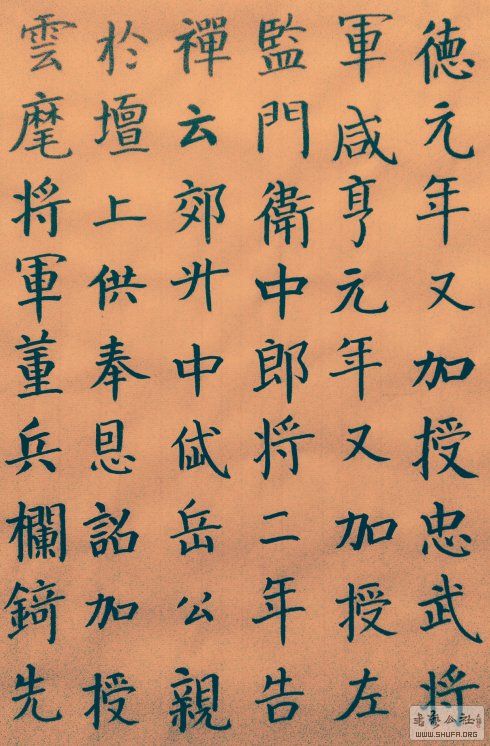 徳元年又加授忠武将
軍咸亨元年又加授左
監門衛中郎将二年告
禪云郊升中岱岳公親
於壇上供奉恩詔加授
雲麾将軍董兵欄錡先
书艺公社
WWW.SHUFA.ORG